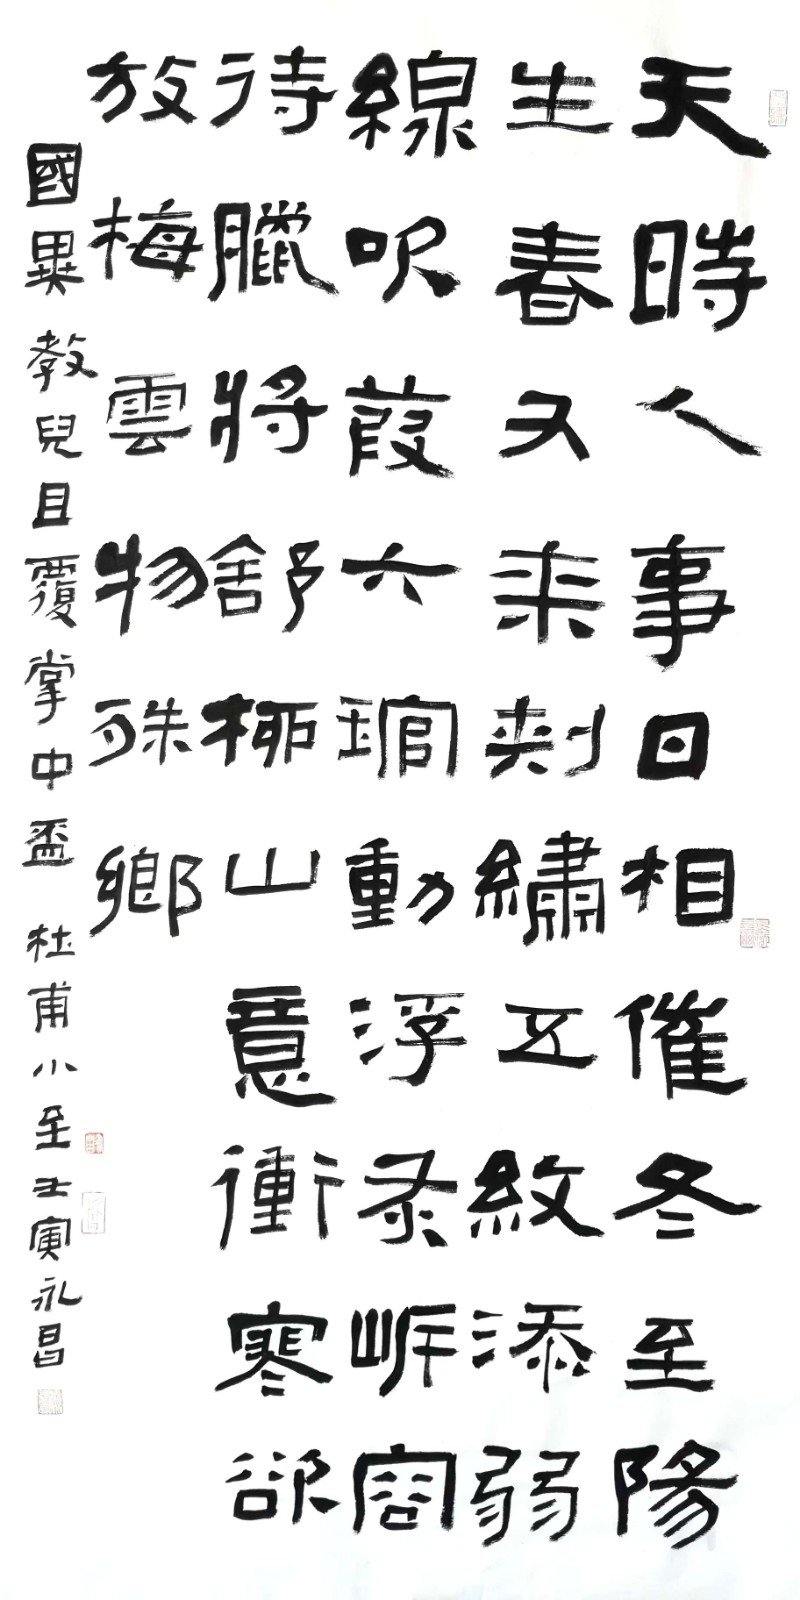 天時人事日相催冬至陽
生春又来刺繡五紋添弱
線吹葭六琯動浮灰岸容
待臘將舒柳山意衝寒欲
放梅雲物殊鄉
國異教兒且覆掌中盃 杜甫小至 壬寅永昌